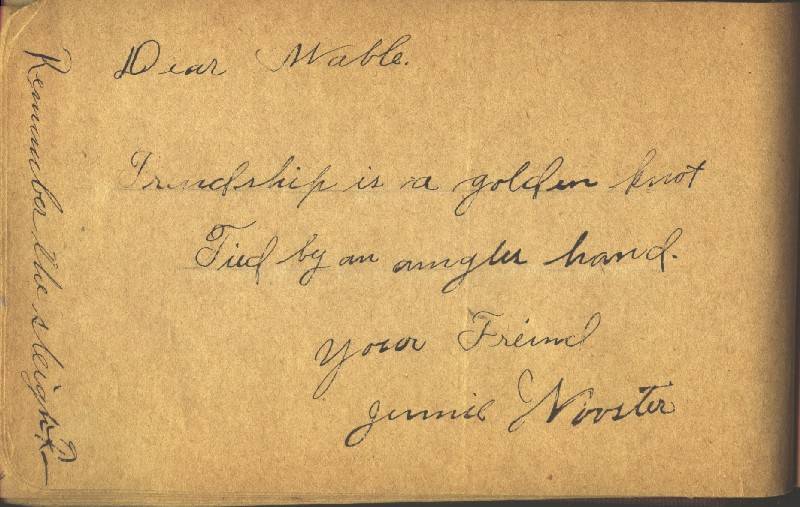 Dear Mable.
Frendship is a golden knot
Tied by an angles hand.
your Freind
Jennie Wooster
Remember the sleigh